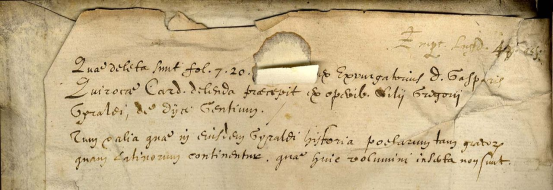 Quae deleta sunt fol. 7. 20. ex Expurgatorius D. Gasparis
Quirocae Card. delenda praecepit ex operib. Lilij Gregorij
Gyraldi, de Dijs Gentium.
Tum & alia quae in eiusdem Gyraldi historia poetarum tam graecor.
quam Latinorum continentur, quae huic volumini inserta non sunt.